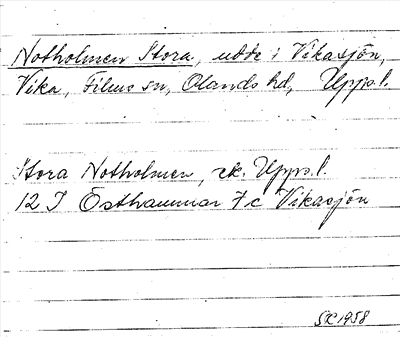 Notholmen Stora, udde i Vikasjön,
Vika, Films sn, Olands hd, Upps.l.
Stora Notholmen, ek. Upps.l.
12 I Östhammar 7 c Vikasjön
SR 1958